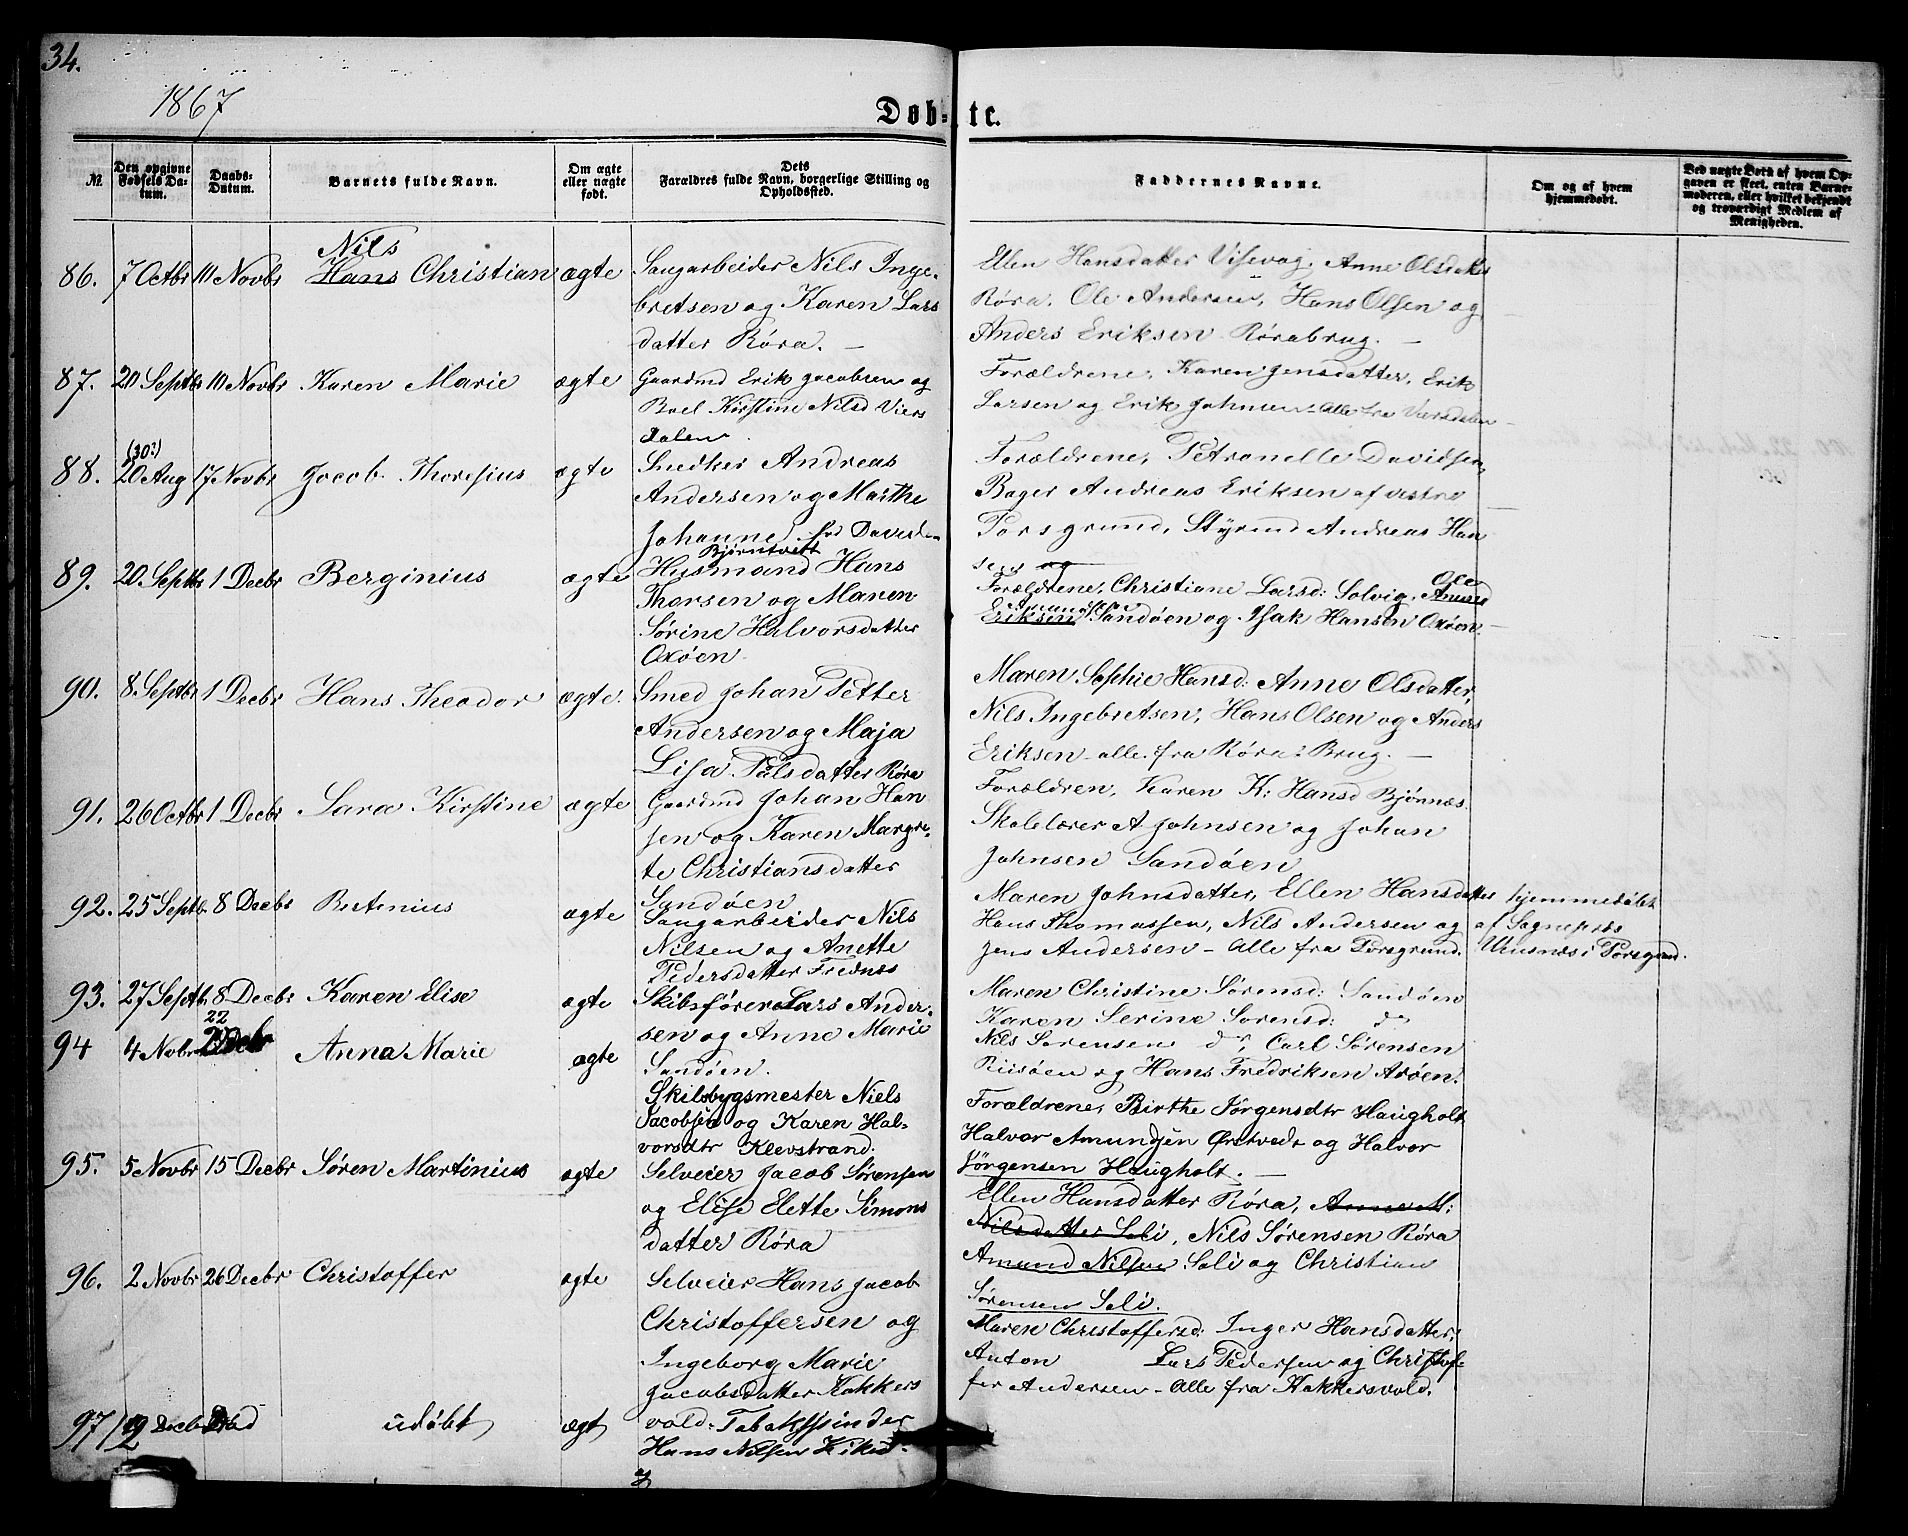 34.
1867
Døb-te.
№
Den opgivne Fødsels Datum.
Daabs-Datum.
Barnets fulde Navn.
Om ægte eller uægte født.
Dets Forældres fulde Navn, borgerlige Stilling og Opholdssted.
Faddernes Navne.
Om og af hvem hjemmedøbt.
Ved uægte Børn af hvem Opgaven er skeet, enten Barnemoderen, eller hvilket bekjendt og troværdigt Medlem af Menigheden.
86. 7 Octbr 10 Novbr Nils Hans Christian ægte
Saugarbeider Nils Inge-
bretsen og Karen Lars
datter Röra. —
Ellen Hansdatter Visevag, Anne Olsdatter
Röra, Ole Andersen, Hans Olsen og
Anders Eriksen Rörabrug. —
87. 20 Septbr 10 Novbr Karen Marie ægte
Gaardmd Erik Jacobsen og
Boel Kirstine Nilsd Viers
dalen.
Forældrene, Karen Jensdatter, Erik
Larsen og Erik Johnsen alle fra Viersdalen
88. (30?) 20 Aug 17 Novbr Jacob Thoresius ægte
Snedker Andreas
Andersen og Marthe
Johanne fød Davidsen
Bjørntvett
Forældrene, Petronelle Davidsen,
Bager Andreas Eriksen af vestre
Porsgrund, Styrmd Andreas Han
sen og
89. 20 Septbr 1 Decbr Berginius ægte
Husmand Hans
Thorsen og Maren
Sörine Halvorsdatter
Oxöen
Forældrene, Christiane Larsd: Solvig, Ole Amund
Eriksen Amundsen Sandöen og Isak Hansen Oxöen.
90. 8 Septbr 1 Decbr Hans Theodor ægte.
Smed Johan Petter
Andersen og Maja
Lisa Palsdatter Röra
Maren Sophie Hansd: Anne Olsdatter,
Nils Ingebretsen, Hans Olsen og Anders
Eriksen alle fra Röra Brug. —
91. 26 Octbr 1 Decbr Sara Kirstine ægte
Gaardmd Johan Han
sen og Karen Margre-
te Christiansdatter
Sandöen
Forældren, Karen K: Hansd Bjönnæs
Skolelærer A Johnsen og Johan
Johnsen Sandöen
92. 25 Septb. 8 Decbr Betenius ægte
Saugarbeider Nils
Nilsen og Anette
Pedersdatter Frednæs
Maren Johnsdatter, Ellen Hansdatter
Hans Thomassen, Nils Andersen og
Jens Andersen — Alle fra Porsgrund.
hjemmedöbt
af Sognepræs
i Porsgrund.
93. 27 Septb. 8 Decbr Karen Elise ægte
Skibsförer Lars Ander-
sen og Anne Marie
Sandöen.
Maren Christine Sörensd: Sandöen
Karen Serine Sorensd: do
Nils Sorensen do, Carl Sörensen
Riisöen og Hans Fredriksen Aröen.
94 4 Novbr 22 Decbr Anna Marie ægte
Skibsbygmester Niels
Jacobsen og Karen Hal-
vorsdtr Klevstrand.
Forældrene, Birthe Jørgensdtr Haugholt
Halvor Amundsen Ørstvedt og Halvor
Jørgensen Haugholt. —
95. 5 Novbr 15 Decbr Sören Martinius ægte
Selveier Jacob Sörensen
og Elise Elette Simons
datter Röra
Ellen Hansdatter Röra, Anne M:
Nilsdatter Soli, Nils Sörensen Röra
Amund Nilsen Soli og Christian
Sörensen Soli.
96. 2 Novbr 26 Decbr Christoffer ægte
Selveier Hans Jacob
Christoffersen og
Ingeborg Marie
Jacobsdatter Kokkers
vold.
Maren Christoffersd: Inger Hansdatter,
Anton Lars Pedersen og Christof
fer Andersen — Alle fra Kokkersvold.
97 12 Decbr Död udöbt ægt
Tabakspinder
Hans Nilsen
og